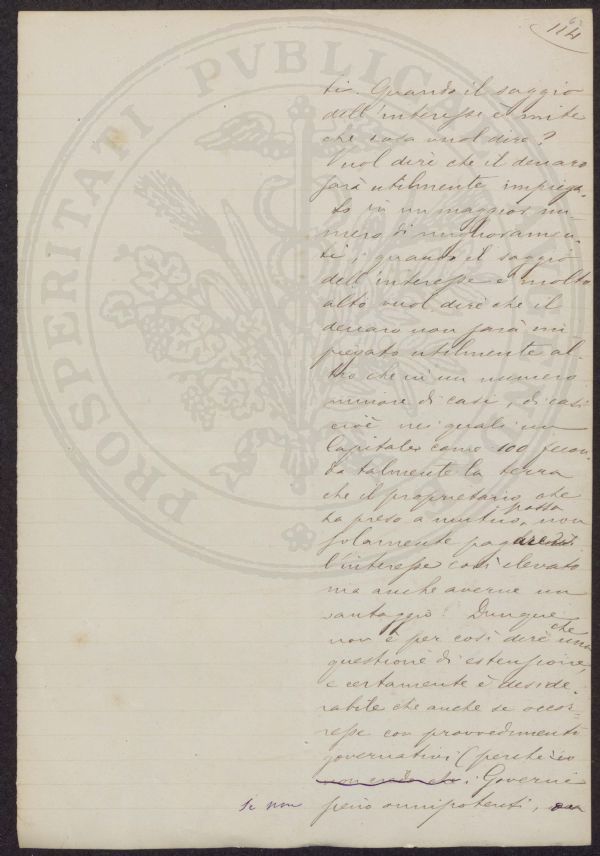 114
ti. Quando il saggio
dell'interesse è mite
che cosa vuol dire?
Vuol dire che il denaro
sarà utilmente impiega-
to in un maggior nu-
mero di miglioramen-
ti; quando il saggio
dell'interesse è molto
alto vuol dire che il
denaro non sarà im
piegato utilmente al-
tro che in un numero
minore di casi, di casi
cioè nei quali un
Capitale come 100 fecon-
da talmente la terra
che il proprietario che
ha preso a mutuo, possa non
solamente pagare
l'interesse così elevato
ma anche averne un
vantaggio. Dunque
non è per così dire che una
questione di estensione,
e certamente è deside-
rabile che anche se occor-
resse con provvedimenti
governativi (perchè io
non credo che i Governi
se non sieno onnipotenti,
PROSPERITATI PVBLICAE